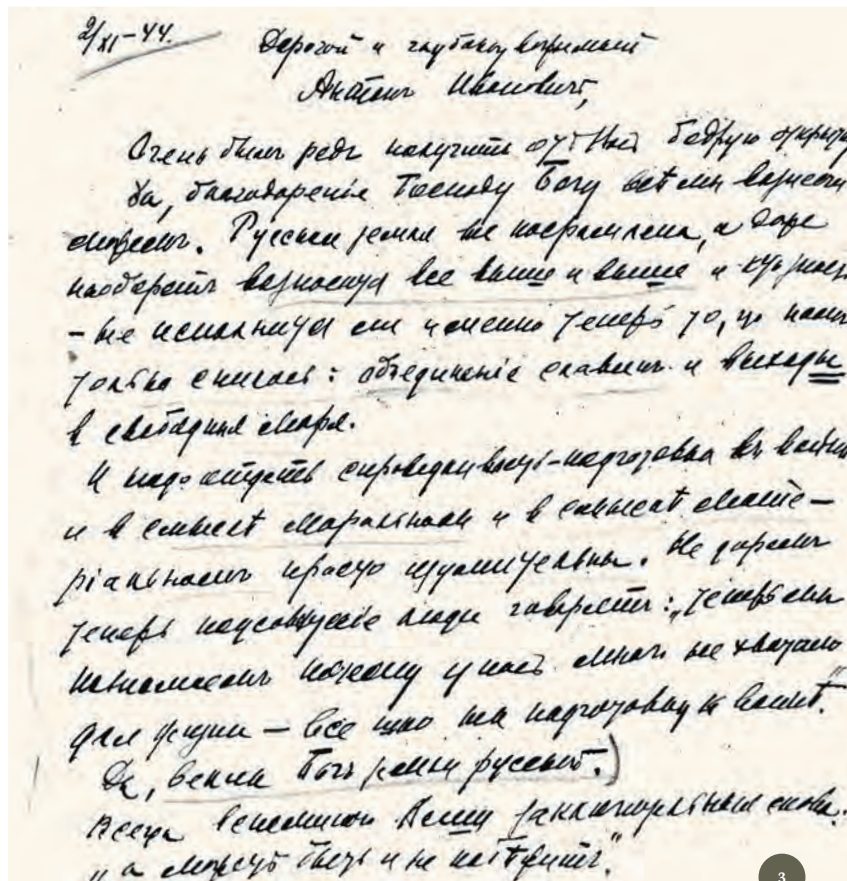 2/XI-44.
Дорогой и глубокоуважаемый
Антонъ Ивановичъ,
Очень былъ радъ получить отъ Васъ бодрую открытку
Да, благодареніе Господу Богу всѣ мы
Русская земля не посрамлена, а даже
наоборотъ возносится все выше и выше и
- не исполнится ли именно теперь то, что намъ
только снилось: объединеніе славянъ и выходы
в свободныя моря.
И надо отдать справедливость-подготовка къ войнѣ
и в смыслѣ моральномъ и в смыслѣ мате-
ріальномъ просто изумительны. Не даромъ
теперь подсовѣтскіе люди говорятъ: „теперь мы
понимаемъ почему у насъ многаго не хватало
для жизни — все шло на подготовку к войнѣ."
Да, великъ Богъ земли русской.)
Всегда вспоминаю Ваши заключительныя слова:
„а можетъ быть и не
3